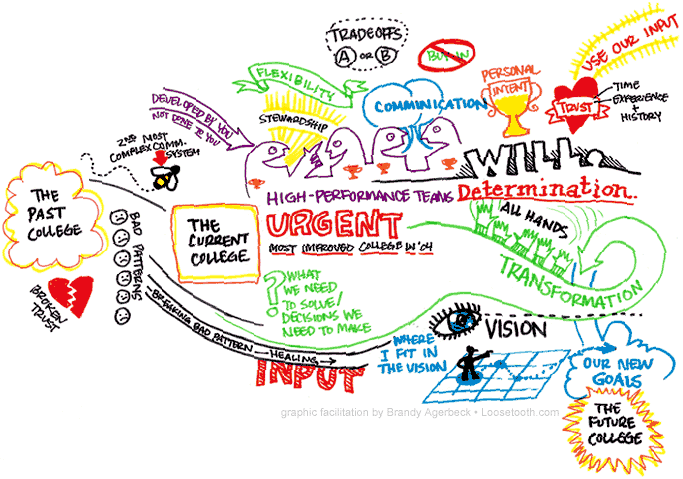 TRADEOFFS
A OR B
BUY IN
USE OUR INPUT
FLEXIBILITY
PERSONAL
INTENT
COMMUNICATION
TRUST
TIME
EXPERIENCE
+
HISTORY
DEVELOPED BY YOU
NOT DONE TO YOU
STEWARDSHIP
2ND MOST
COMPLEX COMM.
SYSTEM
WILL
THE
PAST
COLLEGE
HIGH-PERFORMANCE TEAMS
Determination..
THE
CURRENT
COLLEGE
URGENT
MOST IMPROVED COLLEGE IN '04
ALL HANDS
TRANSFORMATION
BAD PATTERNS
BROKEN
TRUST
? WHAT
WE NEED
TO SOLVE/
DECISIONS WE
NEED TO MAKE
BREAKING BAD PATTERN — HEALING →
INPUT
VISION
WHERE
I FIT IN
THE VISION
OUR NEW
GOALS
THE
FUTURE
COLLEGE
graphic facilitation by Brandy Agerbeck • Loosetooth.com